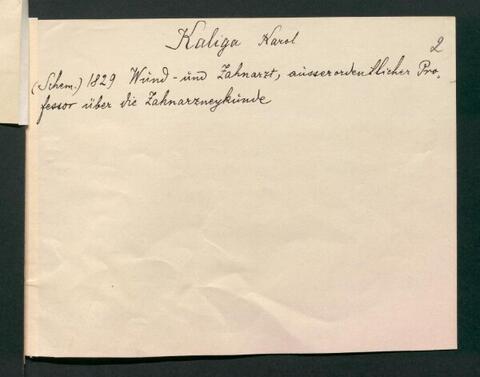 Kaliga Karol
2
(Schem.) 1829 Wund- und Zahnarzt, ausserordentlicher Pro-
fessor über die Zahnarzneykunde